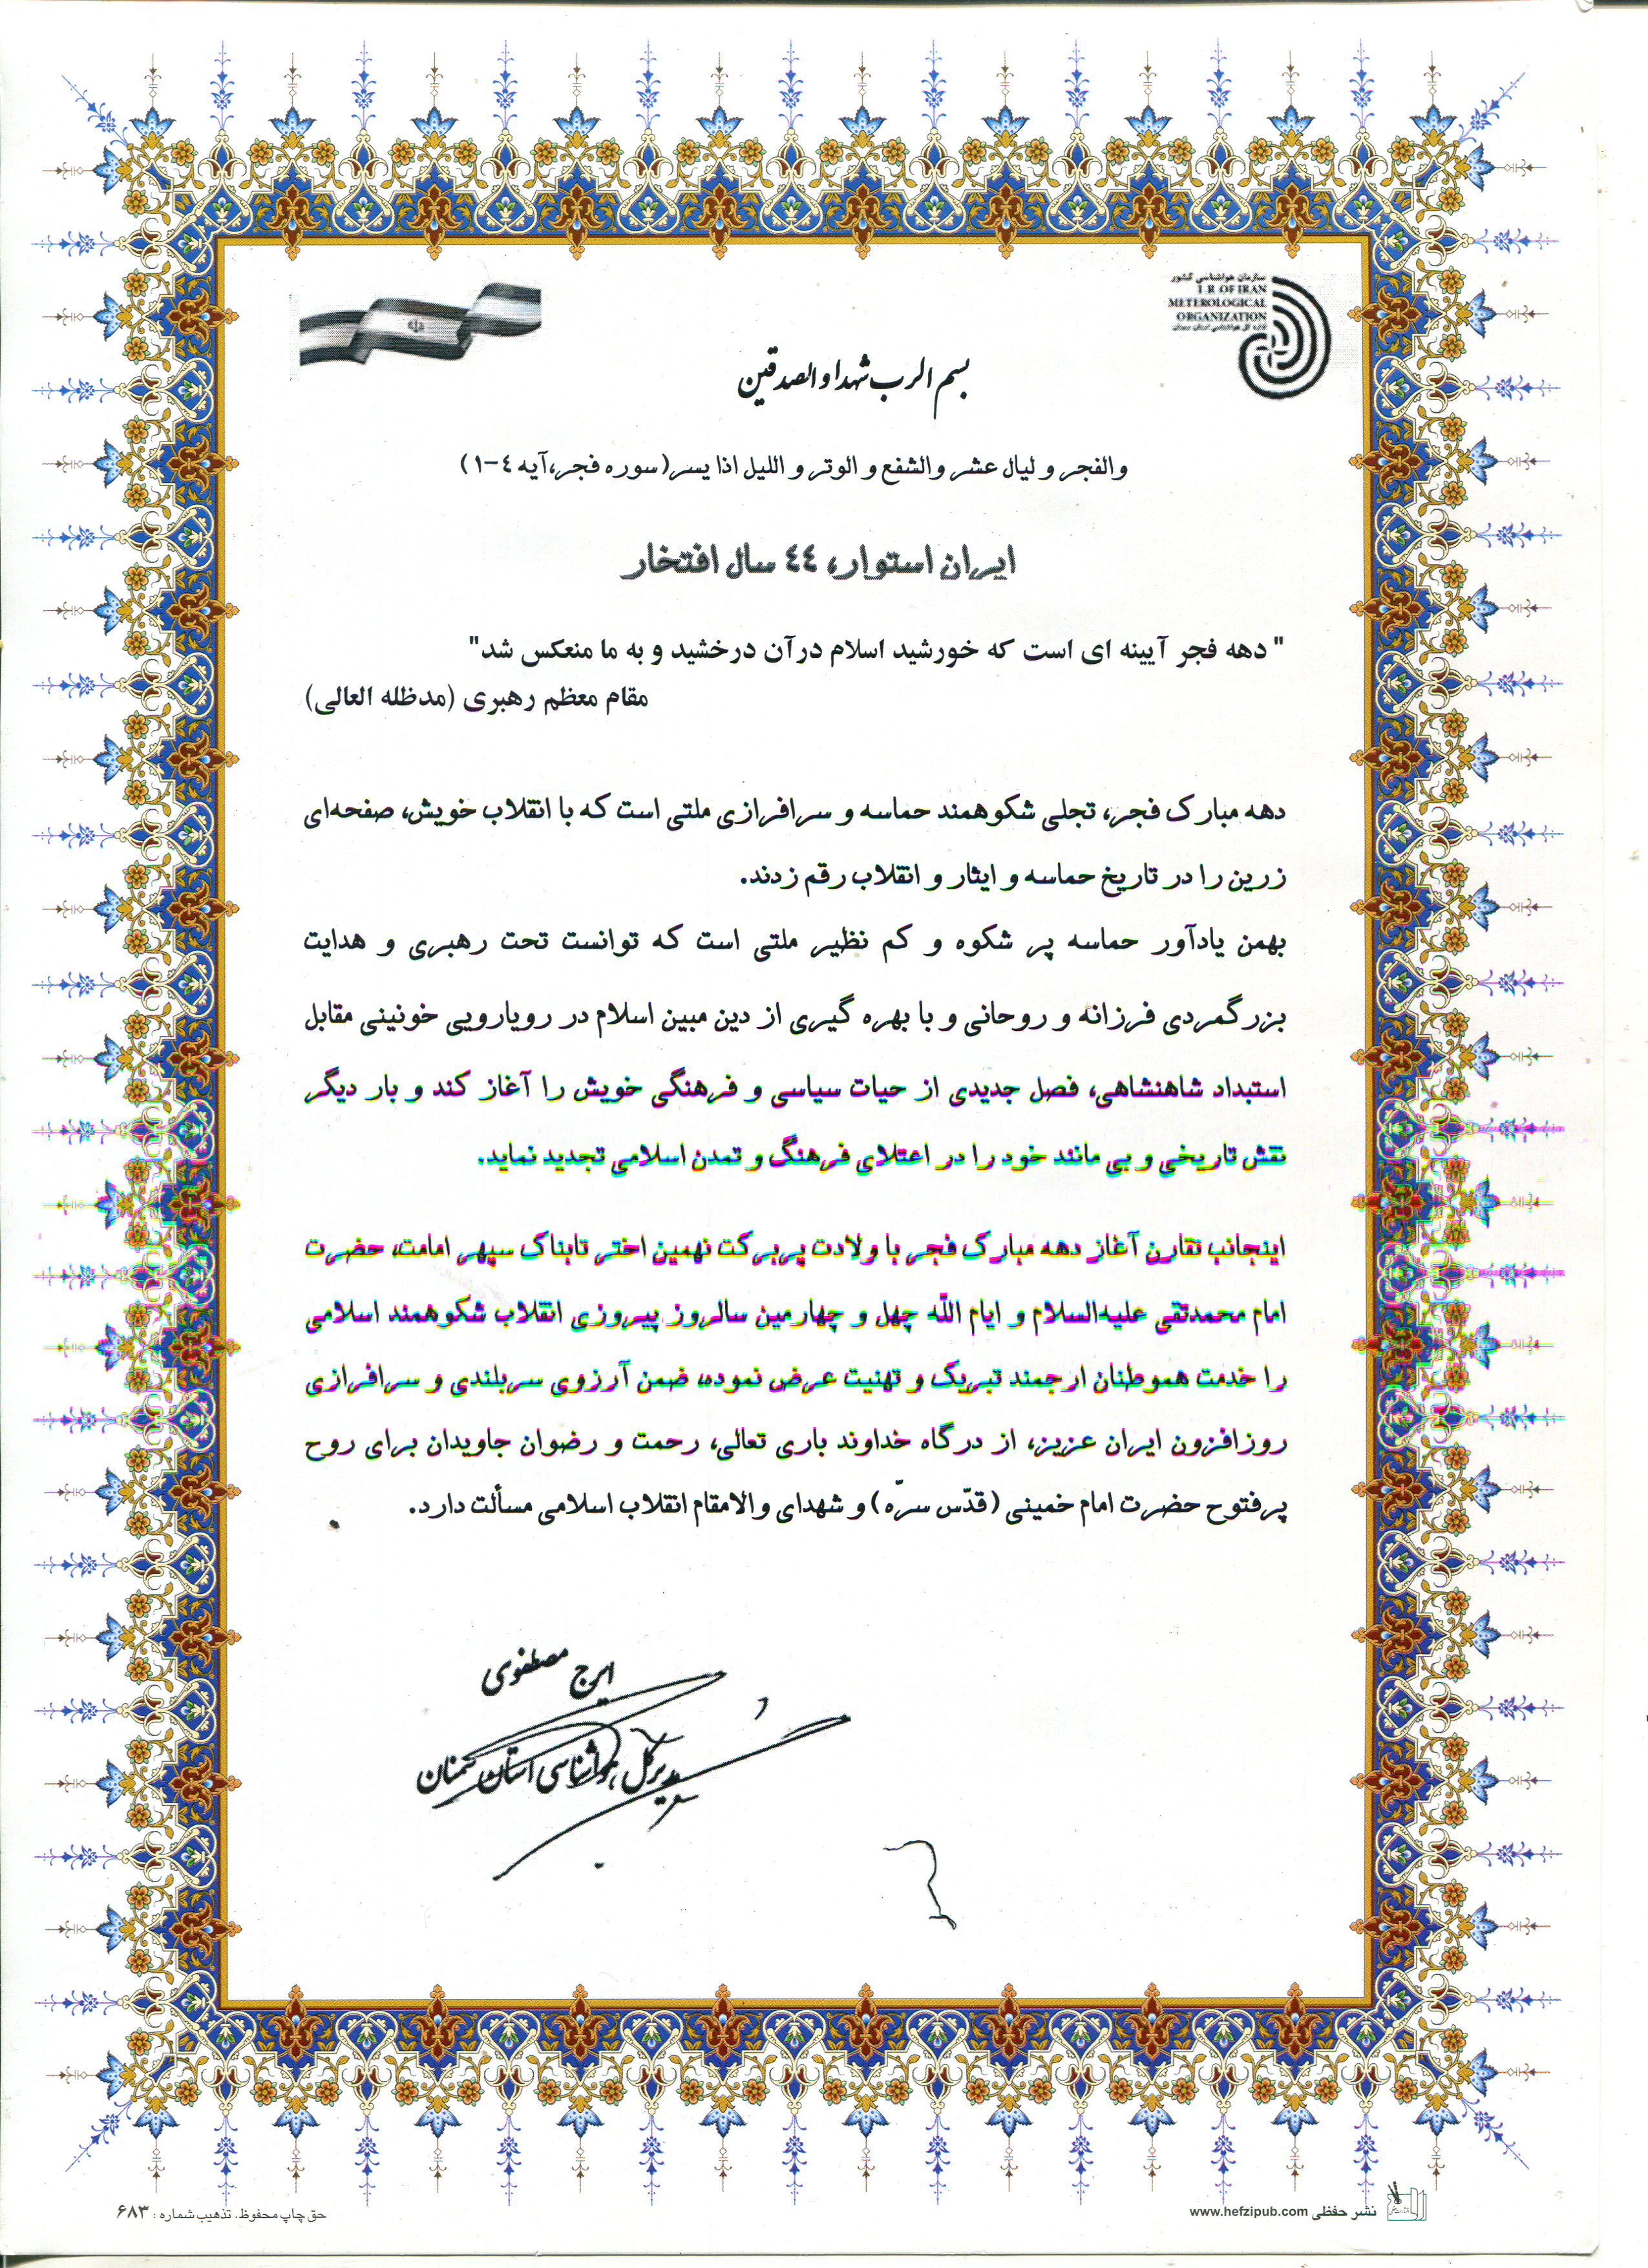 سازمان هواشناسی کشور
I.R OF IRAN
METEROLOGICAL
ORGANIZATION
اداره کل هواشناسی استان سمنان
بسم الرب شهدا و الصدقین
والفجر و لیال عشر والشفع و الوتر و اللیل اذا یسر(سوره فجر،آیه ٤-١)
ایران استوار، ٤٤ سال افتخار
" دهه فجر آیینه ای است که خورشید اسلام درآن درخشید و به ما منعکس شد"
مقام معظم رهبری (مدظله العالی)
دهه مبارک فجر، تجلی شکوهمند حماسه و سرافرازی ملتی است که با انقلاب خویش، صفحه‌ای
زرین را در تاریخ حماسه و ایثار و انقلاب رقم زدند.
بهمن یادآور حماسه پر شکوه و کم نظیر ملتی است که توانست تحت رهبری و هدایت
بزرگمردی فرزانه و روحانی و با بهره گیری از دین مبین اسلام در رویارویی خونینی مقابل
استبداد شاهنشاهی، فصل جدیدی از حیات سیاسی و فرهنگی خویش را آغاز کند و بار دیگر
نقش تاریخی و بی مانند خود را در اعتلای فرهنگ و تمدن اسلامی تجدید نماید.
اینجانب تقارن آغاز دهه مبارک فجر با ولادت پربرکت نهمین اختر تابناک سپهر امامت، حضرت
امام محمدتقی علیه‌السلام و ایام الله چهل و چهارمین سالروز پیروزی انقلاب شکوهمند اسلامی
را خدمت هموطنان ارجمند تبریک و تهنیت عرض نموده، ضمن آرزوی سربلندی و سرافرازی
روزافزون ایران عزیز، از درگاه خداوند باری تعالی، رحمت و رضوان جاویدان برای روح
پرفتوح حضرت امام خمینی (قدّس سرّه) و شهدای والامقام انقلاب اسلامی مسألت دارد.
ایرج مصطفوی
مدیرکل هواشناسی استان سمنان
نشر حفظی www.hefzipub.com
حق چاپ محفوظ. تذهیب شماره : ۶۸۳